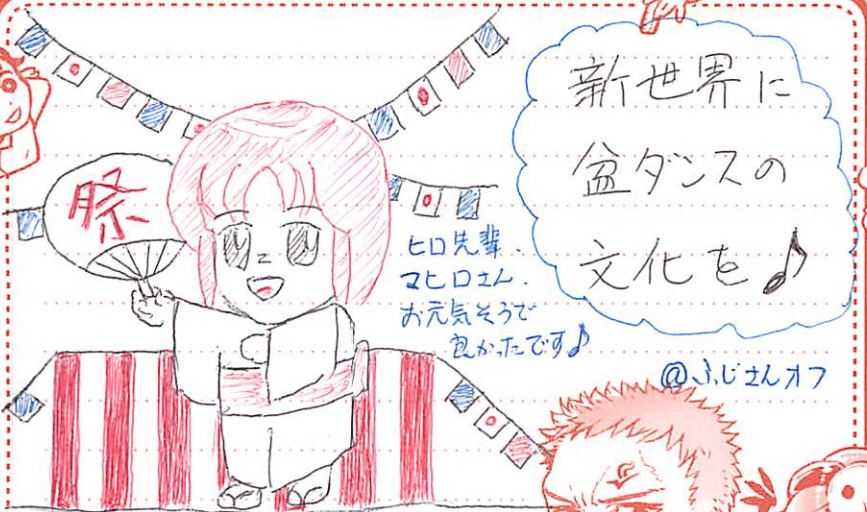 祭
新世界に
盆ダンスの
文化を♪
ヒロ先輩、
マヒロさん、
お元気そうで
良かったです♪
@ふじさんオフ